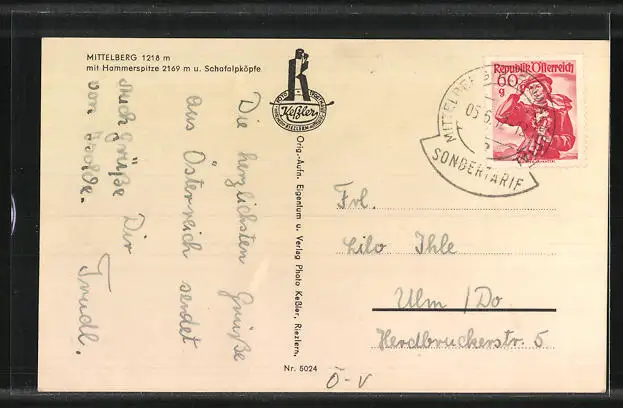 MITTELBERG 1218 m
mit Hammerspitze 2169 m u. Schafalpköpfe
Die herzlichsten Grüße
aus Österreich sendet
Dir Trudl.
Auch Grüße
von Isolde.
Keßler
Orig.-Aufn. Eigentum u. Verlag Photo Keßler, Riezlern.
Nr. 5024
Ö-V
Republik Österreich
60
g
MITTELBERG
SONDERTARIF
Frl.
Lilo Ihle
Ulm /Do.
Herdbruckerstr. 5